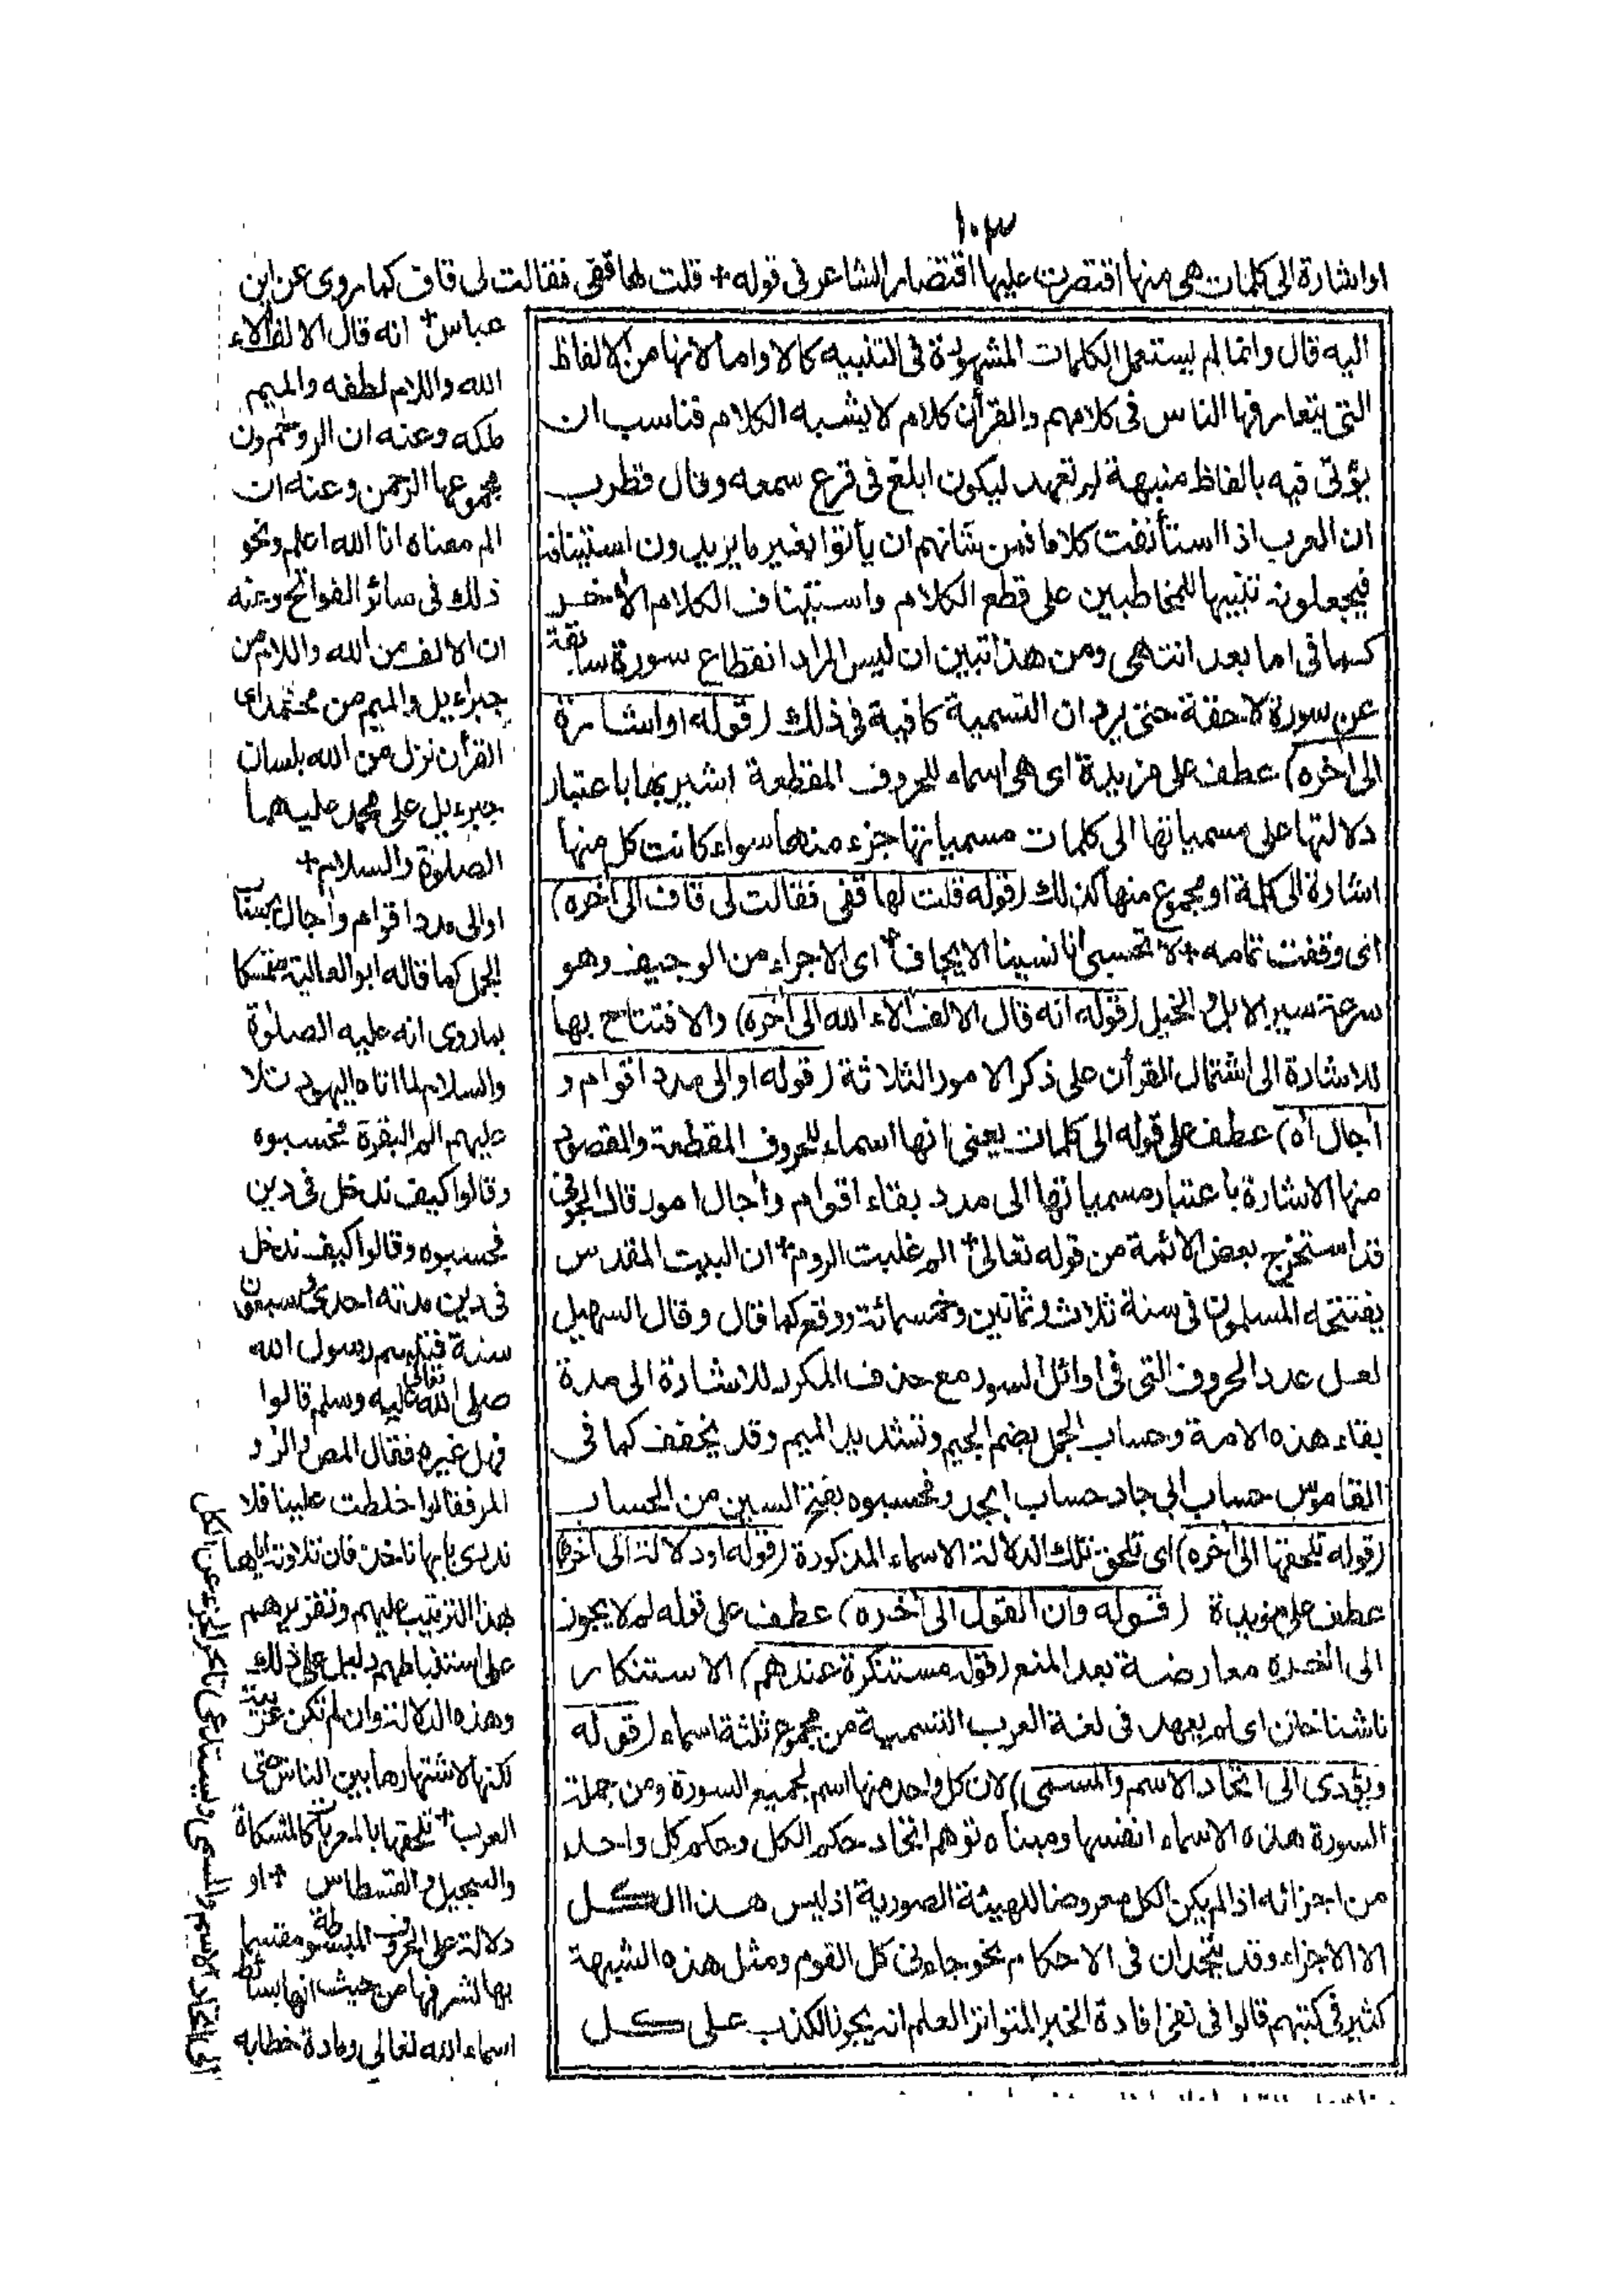 ١٠٣
او اشارة الى كلمات هى منها اقتصرت عليها اقتصار الشاعر فى قوله + قلت لها قفى فقالت لى قاف كما روى عن ابن
عباس + انه قال الالف الاء
الله واللام لطفه والميم
ملكه وعنه ان الر وحم ون
مجموعها الرحمن وعنه ان
الم معناه انا الله اعلم ونحو
ذلك فى سائر الفواتح وعنه
ان الالف من الله واللام من
جبرءيل والميم من محمد اى
القرأن نزل من الله بلسان
جبرءيل على محمد عليهما
الصلوة والسلام +
او الى مدد اقوام وأجال بحساب
الجمل كما قاله ابو العالية متمسكا
بما روى انه عليه الصلوة
والسلام لما اتاه اليهود تلا
عليهم الم البقرة فحسبوه
وقالوا كيف ندخل فى دين
فحسبوه وقالوا كيف ندخل
فى دين مدته احدى وسبعون
سنة فتبسم رسول الله
صلى الله تعالى عليه وسلم قالوا
فهل غيره فقال المص والر و
المر فقالوا خلطت علينا فلا
ندرى بايها ناخذ فان تلاوته اياها
بهذا الترتيب عليهم وتقريرهم
على استنباطهم دليل على ذلك
وهذه الدلالة وان لم تكن عربية
لكنها لاشتهارها بين الناس حتى
العرب + تلحقها بالمعربات كالمشكاة
والسجيل والقسطاس + او
دلالة على الحروف المبسوطة مقسما
بها لشرفها من حيث انها بسائط
اسماء الله تعالى ومادة خطابه
الى اتحاد الاسم والمسمى ويستدعى تاخر الجزء عن الكل
اليه قال وانما لم يستعمل الكلمات المشهورة فى التنبيه كالا واما لانها من الالفاظ
التى يتعارفها الناس فى كلامهم والقرأن كلام لا يشبه الكلام فناسب ان
يؤتى فيه بالفاظ منبهة لم تعهد ليكون ابلغ فى قرع سمعه وقال قطرب
ان العرب اذا استأنفت كلاما فمن شانهم ان يأتوا بغير ما يريدون استينافه
فيجعلونه تنبيها للمخاطبين على قطع الكلام واستيناف الكلام الأخر
كما فى اما بعد انتهى ومن هذا تبين ان ليس المراد انقطاع سورة سابقة
عن سورة لاحقة حتى يرد ان التسمية كافية فى ذلك (قوله او اشارة
الى أخره) عطف على مزيدة اى هى اسماء للحروف المقطعة اشير بها باعتبار
دلالتها على مسمياتها الى كلمات مسمياتها جزء منها سواء كانت كل منها
اشارة الى كلمة او مجموع منها كذلك (قوله قلت لها قفى فقالت لى قاف الى أخره)
انى وقفت تمامه + لا تحسبى انا نسينا الايجاف + اى الاجراء من الوجيف وهو
سرعة سير الابل والخيل (قوله انه قال الالف الاء الله الى أخره) والافتتاح بها
للاشارة الى اشتمال القرأن على ذكر الامور الثلاثة (قوله او الى مدد اقوام و
أجال أه) عطف على قوله الى كلمات يعنى انها اسماء للحروف المقطعة والمقصود
منها الاشارة باعتبار مسمياتها الى مدد بقاء اقوام وأجال امور قال الجوفى
قد استخرج بعض الائمة من قوله تعالى + الم غلبت الروم + ان البيت المقدس
يفتتحه المسلمون فى سنة ثلاث وثمانين وخمسمائة ووقع كما قال وقال السهيلى
لعل عدد الحروف التى فى اوائل السور مع حذف المكرر للاشارة الى مدة
بقاء هذه الامة وحساب الجمل بضم الجيم وتشديد الميم وقد يخفف كما فى
القاموس حساب ابى جاد حساب ابجد وفحسبوه بفتح السين من الحساب
(قوله تلحقها الى أخره) اى تلحق تلك الدلالة الاسماء المذكورة (قوله او دلالة الى أخره)
عطف على مزيدة (قوله وان القول الى أخره) عطف على قوله لم لا يجوز
الى أخره معارضة بعد المنع (قوله مستنكرة عندهم) الاستنكار
ناشناختن اى لم يعهد فى لغة العرب التسمية من مجموع ثلثة اسماء (قوله
ويؤدى الى اتحاد الاسم والمسمى) لان كل واحد منها اسم لجميع السورة ومن جملة
السورة هذه الاسماء انفسها ومبناه توهم اتحاد حكم الكل وحكم كل واحد
من اجزائه اذا لم يكن الكل معروضا للهيئة الصورية اذ ليس هذا الكل
الا الاجزاء وقد يتحدان فى الاحكام نحو جاءنى كل القوم ومثل هذه الشبهة
كثير فى كتبهم قالوا فى نفى افادة الخبر المتواتر العلم انه يجوز الكذب على كل